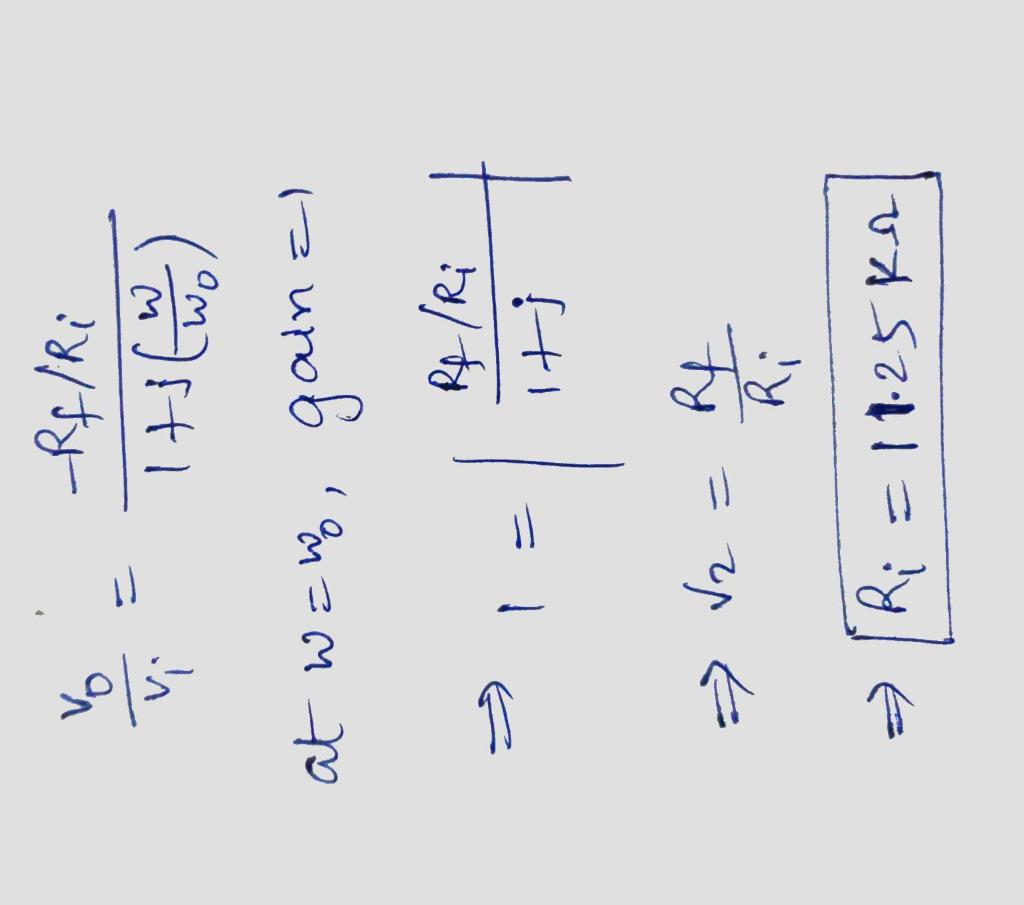 v₀/vᵢ = -Rf/Ri / 1+j(w/w₀)
at w=w₀, gain=1
⇒ 1 = | Rf/Ri / 1+j |
⇒ √2 = Rf/Ri
⇒ Ri = 11.25 KΩ